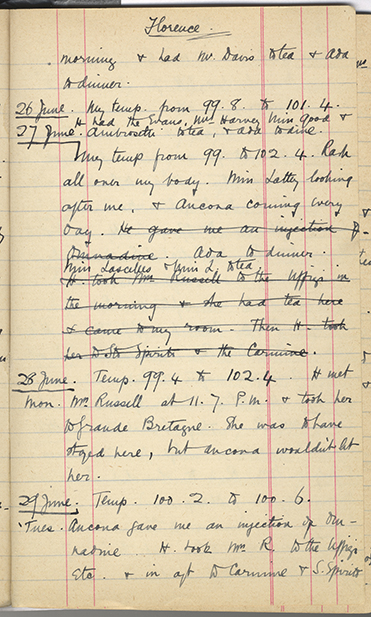 Florence.
morning & had Mr Davis to tea & Ada
to dinner.
26 June. My temp. from 99.8. to 101.4.
H. had the Evans, Mrs Harvey Miss Good &
27 June. Ambrosetti to tea, & Ada to dine.
My temp from 99. to 102.4. Rash
all over my body. Miss Lattey looking
after me, & Ancona coming every
day. He gave me an injection of
Omnadine. Ada to dinner.
Miss Lascelles & Miss L. to tea
H. took Mrs Russell to the Uffizi in
the morning & she had tea here
& came to my room. Then H. took
her to Sto Spirito & the Carmine.
28 June. Temp. 99.4 to 102.4. H met
Mon. Mrs Russell at 11.7. P.M. & took her
to Grande Bretagne. She was to have
stayed here, but Ancona wouldn't let
her.
29 June. Temp. 100.2. to 100.6.
Tues. Ancona gave me an injection of Om-
nadine. H. took Mrs R. to the Uffizi
Etc. & in aft to Carmine & S. Spirito